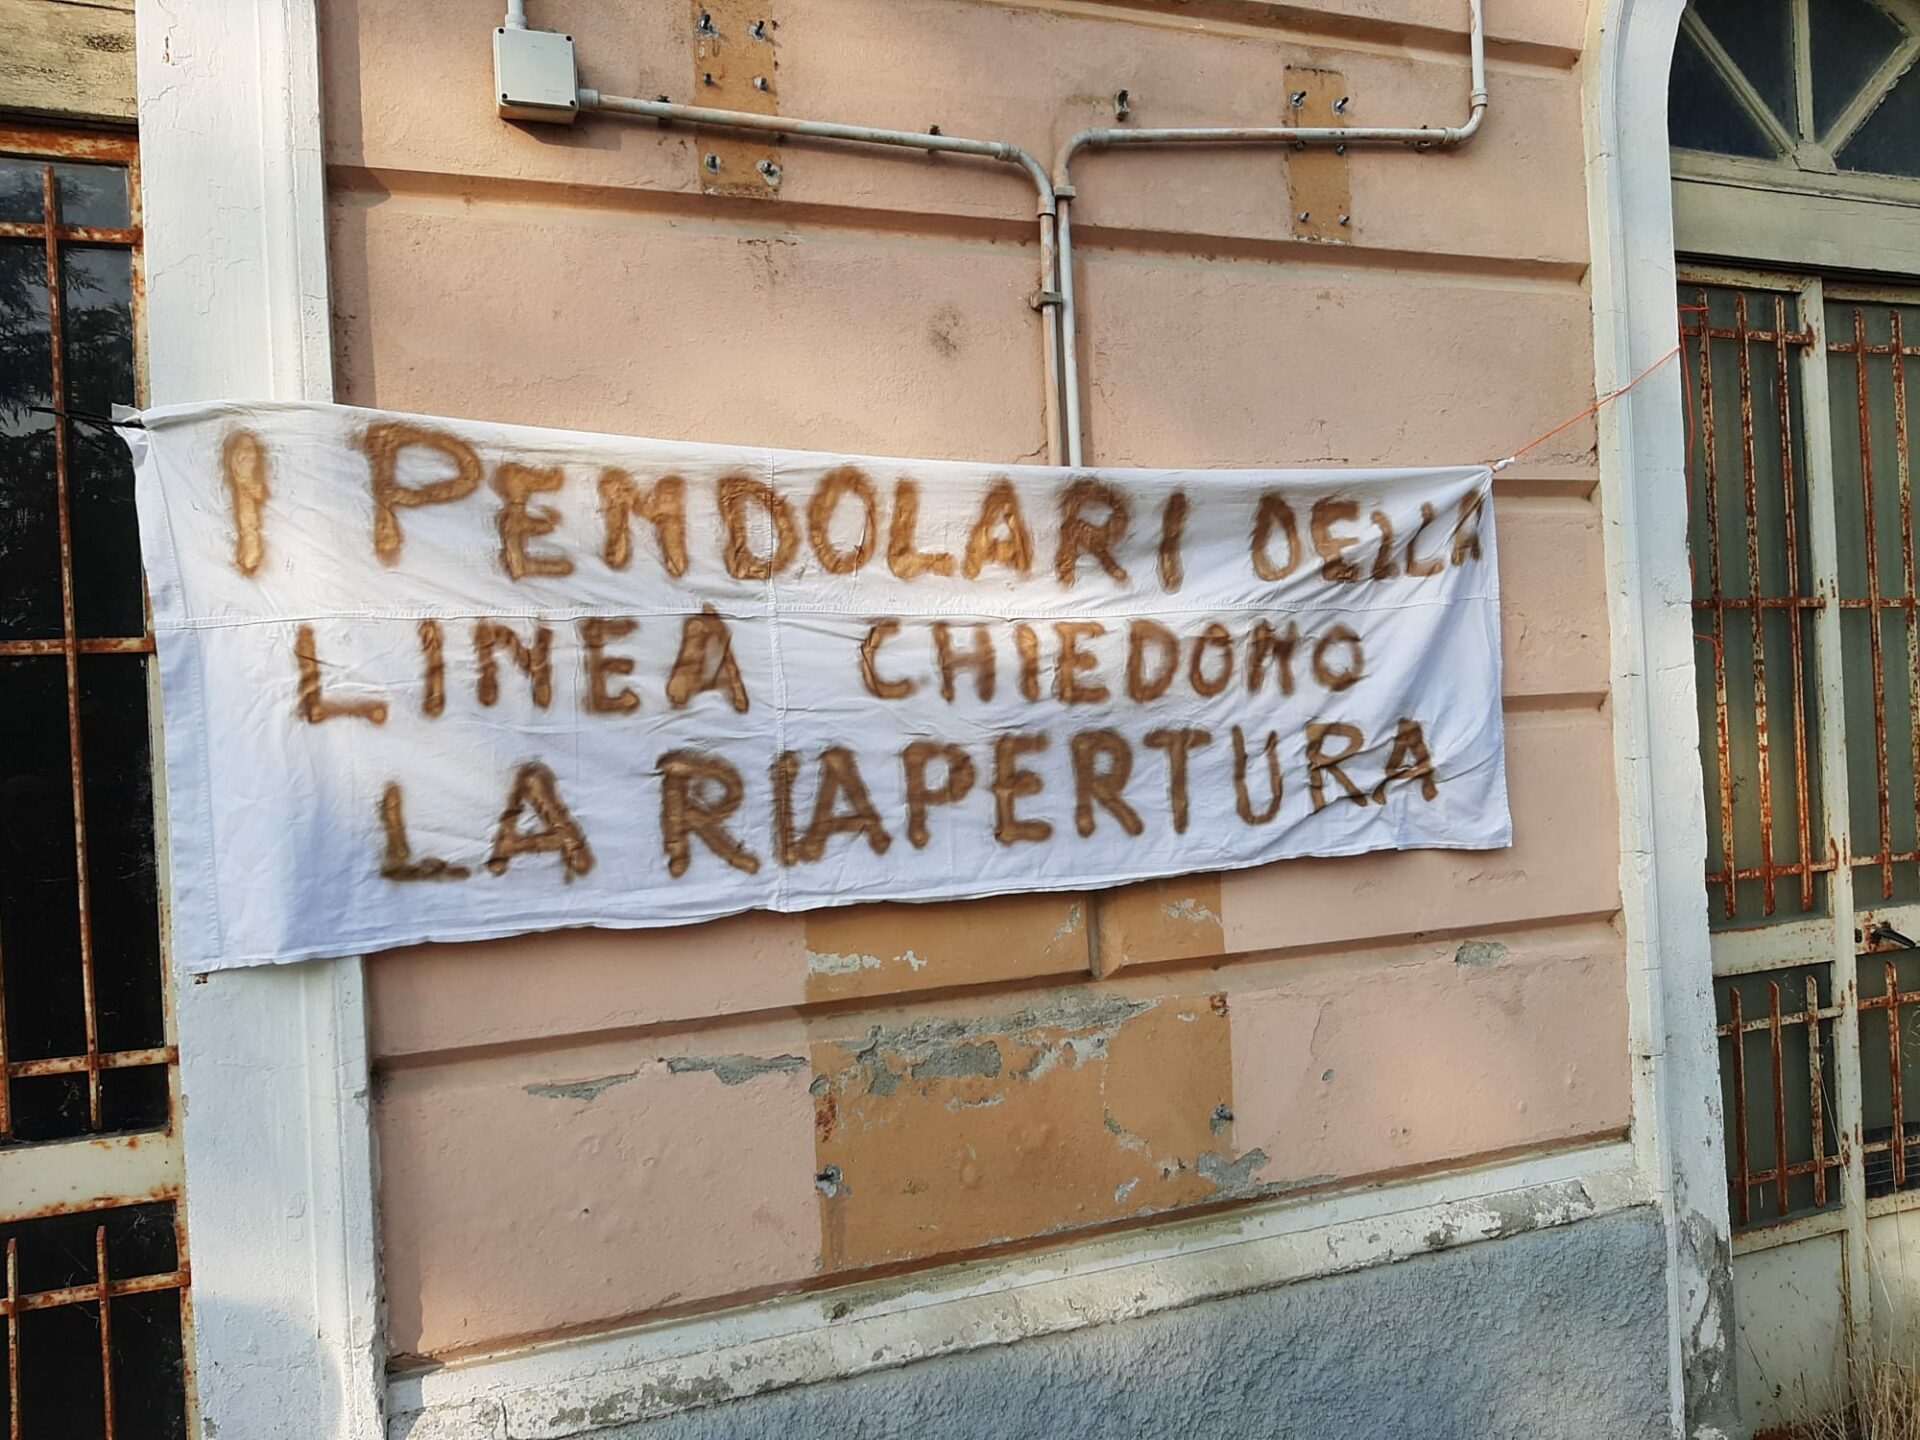 I PENDOLARI DELLA
LINEA CHIEDONO
LA RIAPERTURA